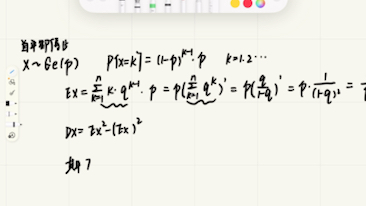 首次即停止
X ~ Ge(p) P{X=k} = (1-p)^{k-1}·p k=1.2...
EX = \sum_{k=1}^{n} k·q^{k-1}·p = p(\sum_{k=1}^{n} q^k)' = p(\frac{q}{1-q})' = p·\frac{1}{(1-q)^2} =
DX = EX^2-(EX)^2